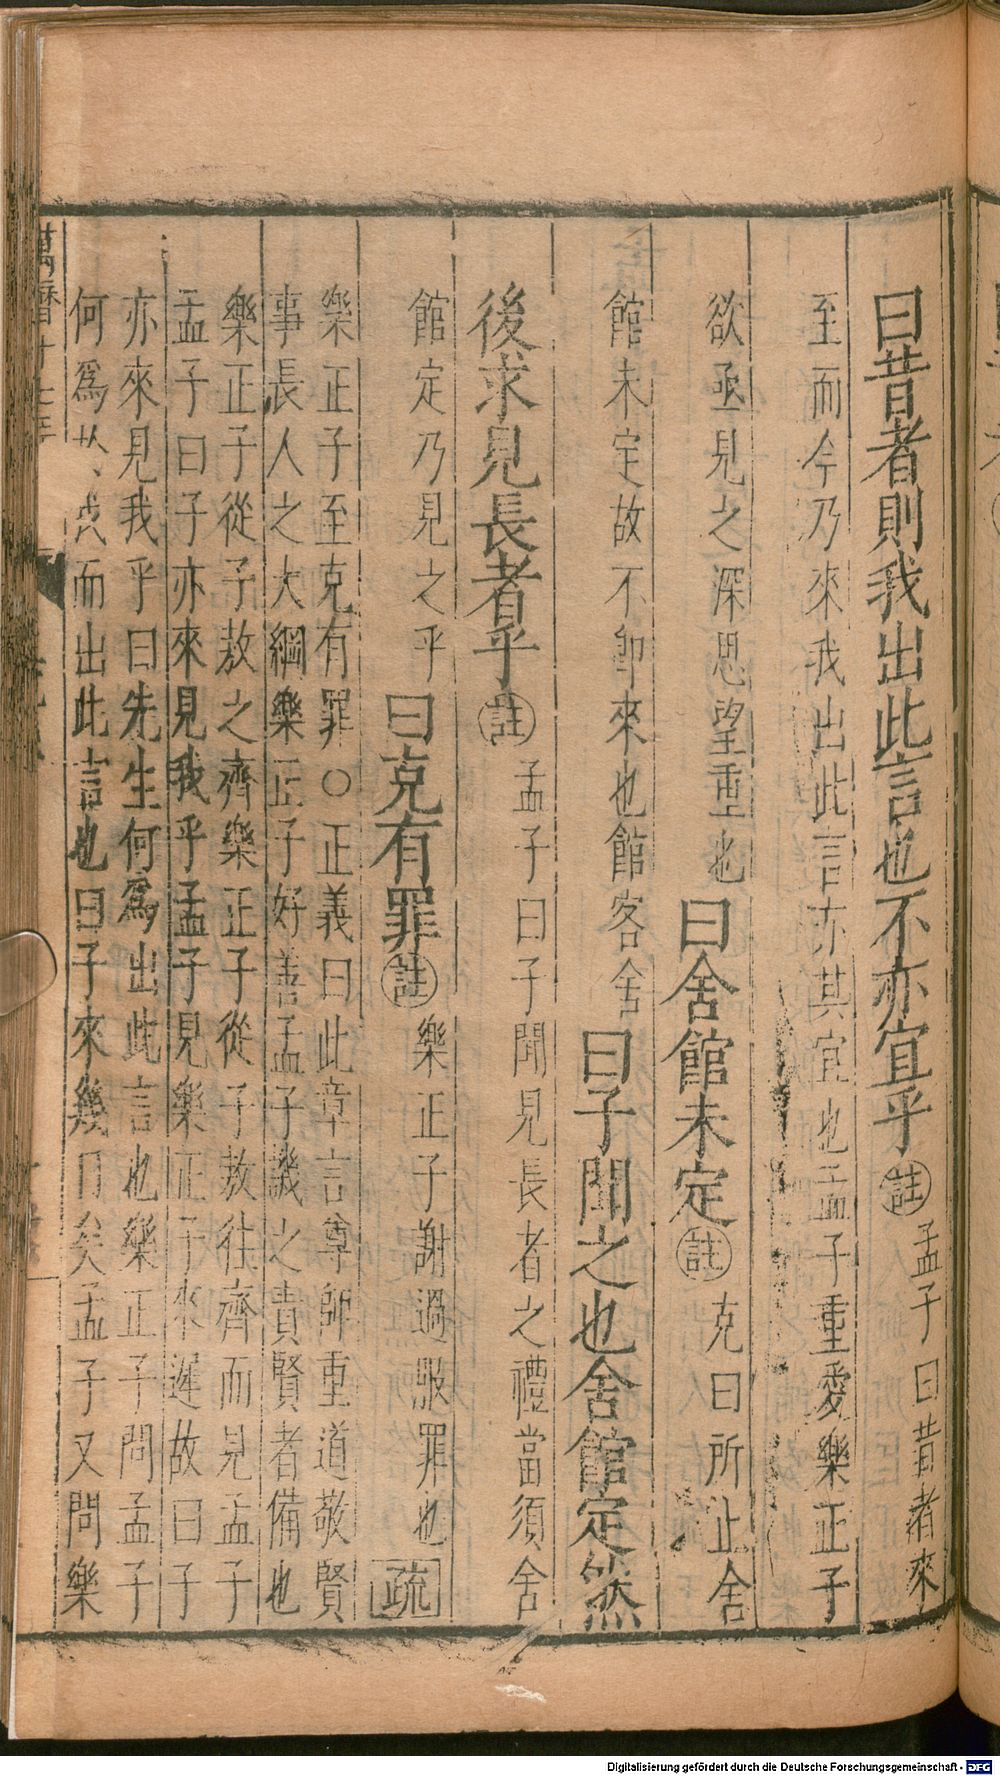 曰昔者則我出此言也不亦宜乎註孟子曰昔者來
至而今乃來我出此言亦其宜也孟子重愛樂正子
欲亟見之深思望重也曰舍館未定註克曰所止舍
館未定故不卽來也館客舍曰子聞之也舍館定然
後求見長者乎註孟子曰子聞見長者之禮當須舍
館定乃見之乎曰克有罪註樂正子謝過服罪也疏
樂正子至克有罪○正義曰此章言尊師重道敬賢
事長人之大綱樂正子好善孟子譏之責賢者備也
樂正子從子敖之齊樂正子從子敖往齊而見孟子
孟子曰子亦來見我乎孟子見樂正子來遲故曰子
亦來見我乎曰先生何爲出此言也樂正子問孟子
何爲而出此言也曰子來幾日矣孟子又問樂
萬曆十七年
Digitalisierung gefördert durch die Deutsche Forschungsgemeinschaft - DFG